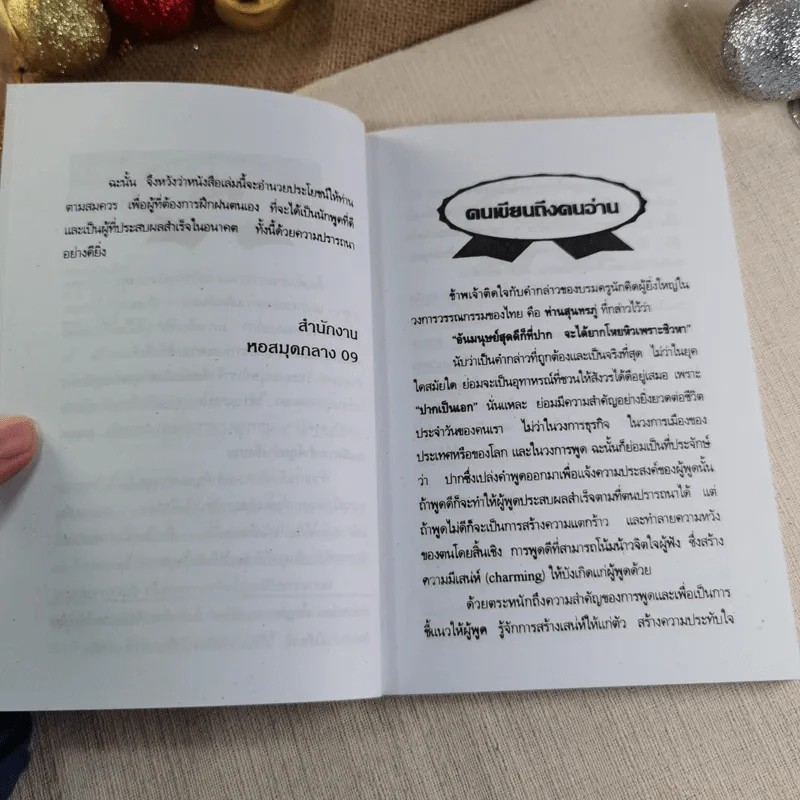 ฉะนั้น จึงหวังว่าหนังสือเล่มนี้จะอำนวยประโยชน์ให้ท่าน
ตามสมควร เพื่อผู้ที่ต้องการฝึกฝนตนเอง ที่จะได้เป็นนักพูดที่ดี
และเป็นผู้ที่ประสบผลสำเร็จในอนาคต ทั้งนี้ด้วยความปรารถนา
อย่างดียิ่ง
สำนักงาน
หอสมุดกลาง 09
คนเขียนถึงคนอ่าน
ข้าพเจ้าติดใจกับคำกล่าวของบรมครูนักคิดผู้ยิ่งใหญ่ใน
วงการวรรณกรรมของไทย คือ ท่านสุนทรภู่ ที่กล่าวไว้ว่า
"อันมนุษย์สุดดีก็ที่ปาก จะได้ยากโหยหิวเพราะชิวหา"
นับว่าเป็นคำกล่าวที่ถูกต้องและเป็นจริงที่สุด ไม่ว่าในยุค
ใดสมัยใด ย่อมจะเป็นอุทาหรณ์ที่ชวนให้สังวรได้ดีอยู่เสมอ เพราะ
"ปากเป็นเอก" นั่นแหละ ย่อมมีความสำคัญอย่างยิ่งยวดต่อชีวิต
ประจำวันของคนเรา ไม่ว่าในวงการธุรกิจ ในวงการเมืองของ
ประเทศหรือของโลก และในวงการพูด ฉะนั้นก็ย่อมเป็นที่ประจักษ์
ว่า ปากซึ่งเปล่งคำพูดออกมาเพื่อแจ้งความประสงค์ของผู้พูดนั้น
ถ้าพูดดีก็จะทำให้ผู้พูดประสบผลสำเร็จตามที่ตนปรารถนาได้ แต่
ถ้าพูดไม่ดีก็จะเป็นการสร้างความแตกร้าว และทำลายความหวัง
ของตนโดยสิ้นเชิง การพูดดีที่สามารถโน้มน้าวจิตใจผู้ฟัง ซึ่งสร้าง
ความมีเสน่ห์ (charming) ให้บังเกิดแก่ผู้พูดด้วย
ด้วยตระหนักถึงความสำคัญของการพูดและเพื่อเป็นการ
ชี้แนวให้ผู้พูด รู้จักการสร้างเสน่ห์ให้แก่ตัว สร้างความประทับใจ